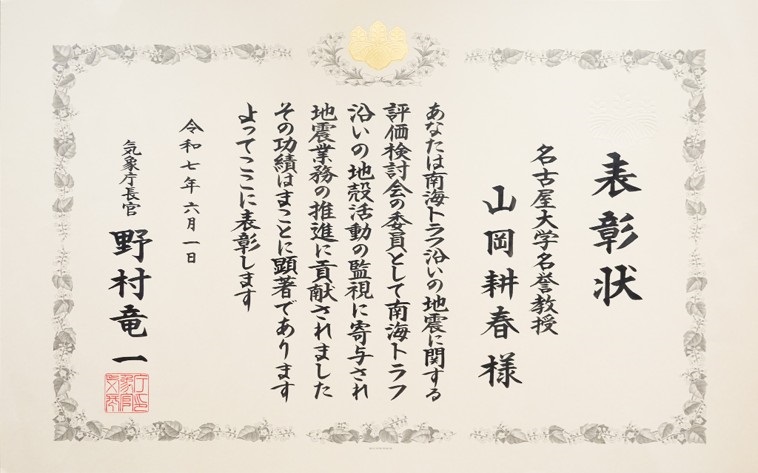 表彰状
名古屋大学名誉教授
山岡耕春様
あなたは南海トラフ沿いの地震に関する
評価検討会の委員として南海トラフ
沿いの地殻活動の監視に寄与され
地震業務の推進に貢献されました
その功績はまことに顕著であります
よってここに表彰します
令和七年六月一日
気象庁長官
野村竜一